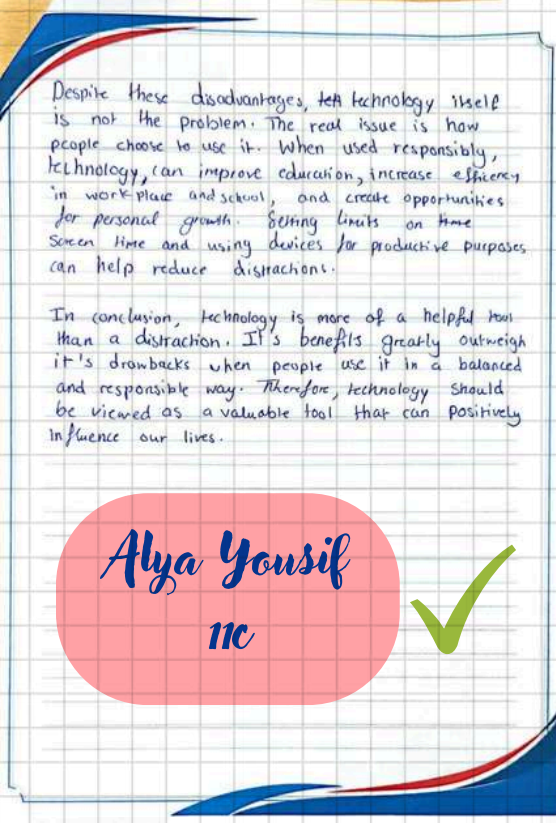 Despite these disadvantages, technology itself
is not the problem. The real issue is how
people choose to use it. When used responsibly,
technology, can improve education, increase efficency
in work place and school, and create opportunities
for personal growth. Setting limits on time
screen time and using devices for productive purposes
can help reduce distractions.
In conclusion, technology is more of a helpful tool
than a distraction. It's benefits greatly outweigh
it's drawbacks when people use it in a balanced
and responsible way. Therefore, technology should
be viewed as a valuable tool that can positively
influence our lives.
Alya Yousif
11C